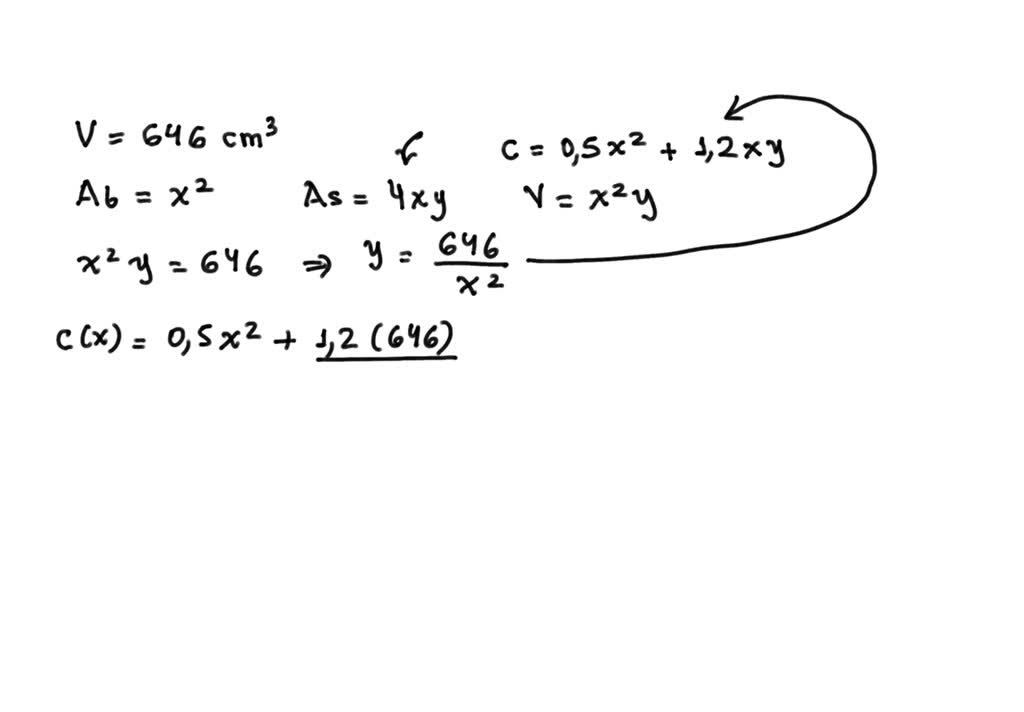 V = 646 cm³
C = 0,5x² + 1,2xy
Ab = x² As = 4xy V = x²y
x²y = 646 ⇒ y = 646/x²
C(x) = 0,5x² + 1,2(646)